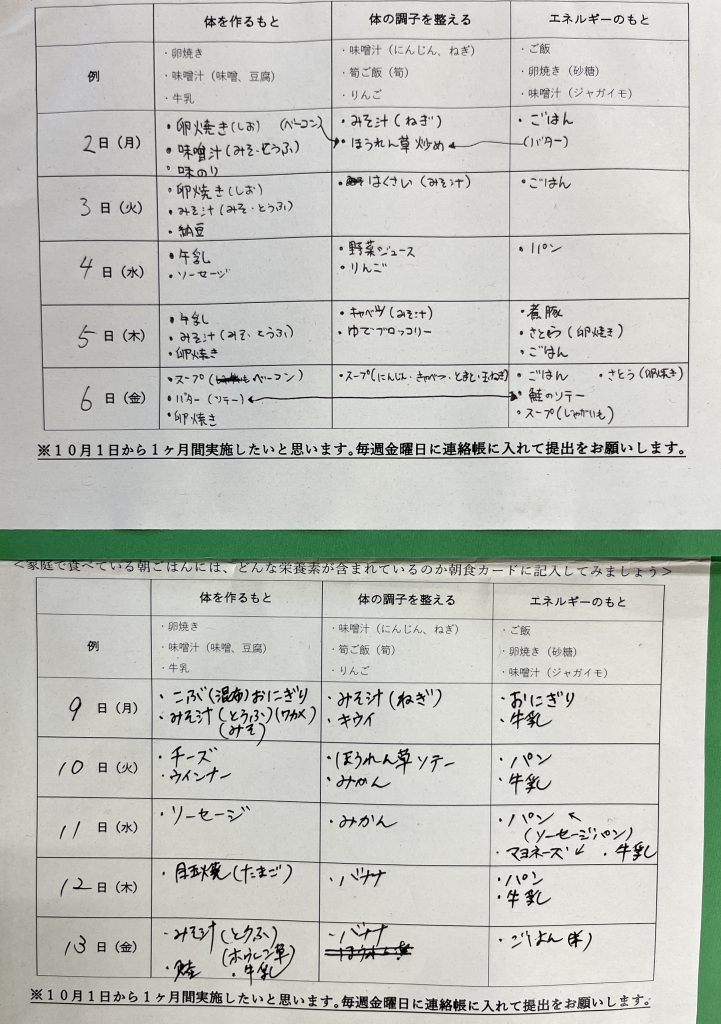 体を作るもと 体の調子を整える エネルギーのもと
例
・卵焼き
・味噌汁（味噌、豆腐）
・牛乳
・味噌汁（にんじん、ねぎ）
・筍ご飯（筍）
・りんご
・ご飯
・卵焼き（砂糖）
・味噌汁（ジャガイモ）
2日（月）
・卵焼き(しお) (ベーコン)
・味噌汁(みそ・とうふ)
・味のり
・みそ汁(ねぎ)
・ほうれん草炒め
・ごはん
(バター)
3日（火）
・卵焼き(しお)
・みそ汁(みそ・とうふ)
・納豆
・はくさい(みそ汁)
・ごはん
4日（水）
・牛乳
・ソーセージ
・野菜ジュース
・りんご
・パン
5日（木）
・牛乳
・みそ汁(みそ・とうふ)
・卵焼き
・キャベツ(みそ汁)
・ゆでブロッコリー
・煮豚
・さとう(卵焼き)
・ごはん
6日（金）
・スープ(ベーコン)
・バター(ソテー)
・卵焼き
・スープ(にんじん・きゃべつ・とまと・玉ねぎ)
・ごはん ・さとう(卵焼き)
・鮭のソテー
・スープ(じゃがいも)
※１０月１日から１ヶ月間実施したいと思います。毎週金曜日に連絡帳に入れて提出をお願いします。
＜家庭で食べている朝ごはんには、どんな栄養素が含まれているのか朝食カードに記入してみましょう＞
体を作るもと 体の調子を整える エネルギーのもと
例
・卵焼き
・味噌汁（味噌、豆腐）
・牛乳
・味噌汁（にんじん、ねぎ）
・筍ご飯（筍）
・りんご
・ご飯
・卵焼き（砂糖）
・味噌汁（ジャガイモ）
9日（月）
・こぶ(昆布)おにぎり
・みそ汁(とうふ)(ワカメ)
(みそ)
・みそ汁(ねぎ)
・キウイ
・おにぎり
・牛乳
10日（火）
・チーズ
・ウインナー
・ほうれん草ソテー
・みかん
・パン
・牛乳
11日（水）
・ソーセージ
・みかん
・パン
(ソーセージパン)
・マヨネーズ ・牛乳
12日（木）
・目玉焼(たまご)
・バナナ
・パン
・牛乳
13日（金）
・みそ汁(とうふ)
(ホウレン草)
・鮭 ・牛乳
・バナナ
・ごはん(米)
※１０月１日から１ヶ月間実施したいと思います。毎週金曜日に連絡帳に入れて提出をお願いします。